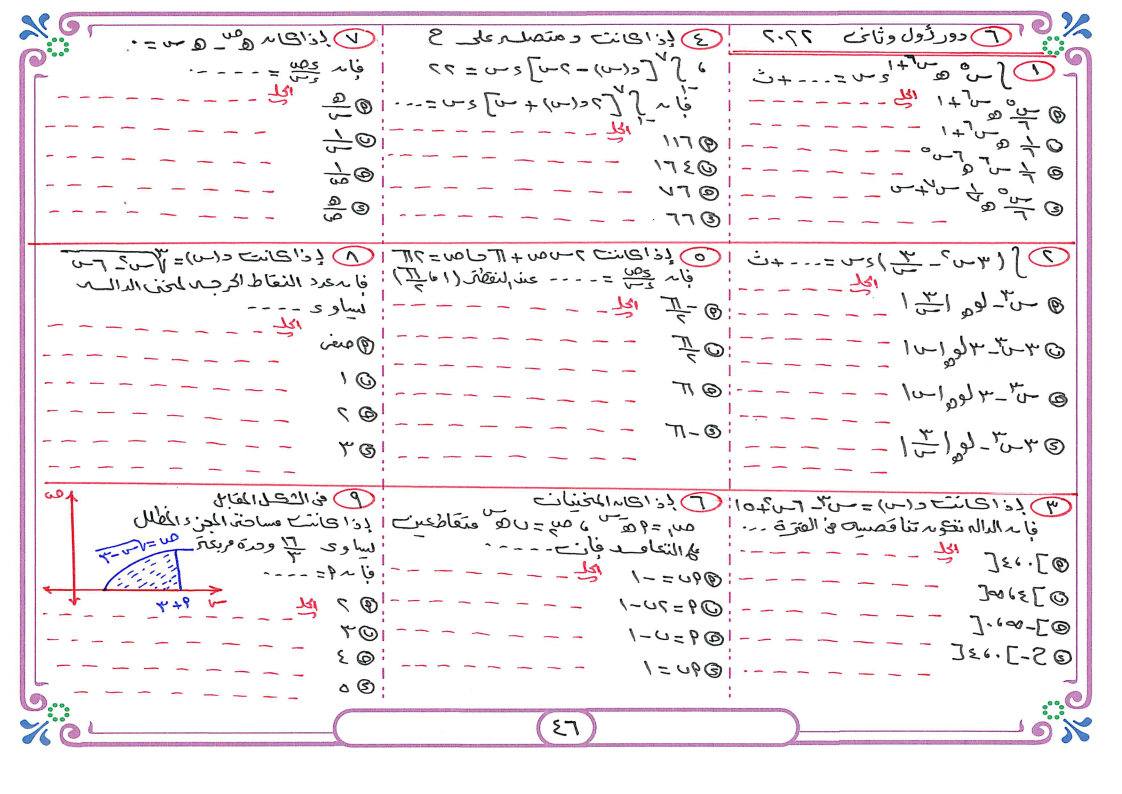 ٦ دور أول وثانى ٢٠٢٢
١ ∫ س٥ هـ س٦+١ ءس = .... + ث
الحل
أ س٥/٦ هـ س٦+١
ب ١/٦ هـ س٦+١
ج ١/٦ س٦ هـ ٦س٥
د س٥/٦ هـ ١/٧ س٧+س
٢ ∫ (٣س٢ - ٣/س) ءس = .... + ث
الحل
أ س٣ - لو هـ |٣/س|
ب ٣س٣ - ٣ لو هـ |س|
ج س٣ - ٣ لو هـ |س|
د ٣س٣ - لو هـ |٣/س|
٣ إذا كانت د(س) = س٣ - ٦س٢ + ١٥
فإن الدالة تكون تناقصية فى الفترة ...
الحل
أ ]٠،٤[
ب ]٤،∞[
ج ]-∞،٠[
د ح - ]٠،٤[
٤ إذا كانت د متصلة على ح
، ∫-١٧ [د(س) - ٢س] ءس = ٢٢
فإن ∫-١٧ [٢د(س) + س] ءس = ...
الحل
أ ١١٦
ب ١٦٤
ج ٧٦
د ٦٦
٥ إذا كانت ٢س ص + π حا ص = ٢π
فإن ءص/ءس = .... عند النقطة (١، π/٢)
الحل
أ -π/٢
ب π/٢
ج π
د -π
٦ إذا كان المنحنيان
ص١ = أ هـ س ، ص٢ = ب هـ-س متقاطعين
على التعامد فإن .....
الحل
أ أب = -١
ب أ = ٢ب - ١
ج أ = ب - ١
د أب = ١
٧ إذا كان هـ ص - هـ س = ٠
فإن ءص/ءس = ....
الحل
أ هـ/س
ب ١/س
ج ١/ص
د هـ/ص
٨ إذا كانت د(س) = ٣√س٢ - ٦س
فإن عدد النقاط الحرجة لمنحنى الدالة
يساوى ....
الحل
أ صفر
ب ١
ج ٢
د ٣
٩ فى الشكل المقابل
إذا كانت مساحة الجزء المظلل
يساوى ١٦/٣ وحدة مربعة
فإن أ = ....
الحل
أ ٢
ب ٣
ج ٤
د ٥
ص
ص = √س-٣
أ+٣
س
٤٦